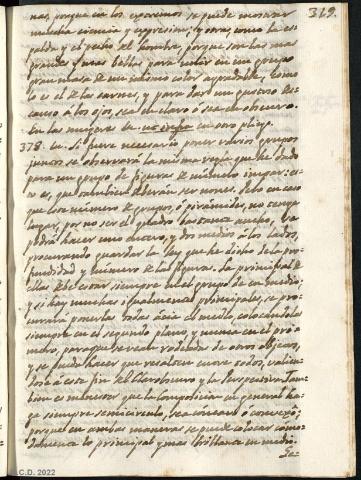 319.
nas, porque en los extremos se puede mostrar
mucha ciencia y expresion; y otras, como la es-
palda y el pecho del hombre, porque son las mas
grandes y mas bellas para unir en un grupo
gran masa de un mismo color agradable, como
lo es el de las carnes, y para dar un gustoso des-
canso á los ojos, sea de claro ó sea de obscuro.
En las mugeres de en otro pliego.
378. Si fuere necesario poner varios grupos
juntos se observará la misma regla que he dado
para un grupo de figuras de número impar: es-
to es, que tambien deberán ser nones. Solo en caso
que este número de grupos ó piramides, no tenga
lugar, por no ser el quadro bastante ancho, se
podrá hacer uno entero, y dos medios á los lados,
procurando guardar la ley que he dicho de la pro-
fundidad y número de las figuras. La principal de
ellas debe estar siempre en el grupo de en medio;
y si hay muchas igualmente principales, se pro-
curará ponerlas todas ácia en medio, colocandolas
siempre en el segundo plano, y nunca en el pri-
mero, para que se vean rodeadas de otros objetos,
y se pueda hacer que resalten entre todos, valien-
dose á este fin del Claroscuro y la Perspectiva. Tam-
bien es menester que la composicion en general ha-
ga siempre semicirculo, sea concavo ó convexo;
porque en ambas maneras se puede colocar como-
damente lo principal y mas brillante en medio.
C.D. 2022